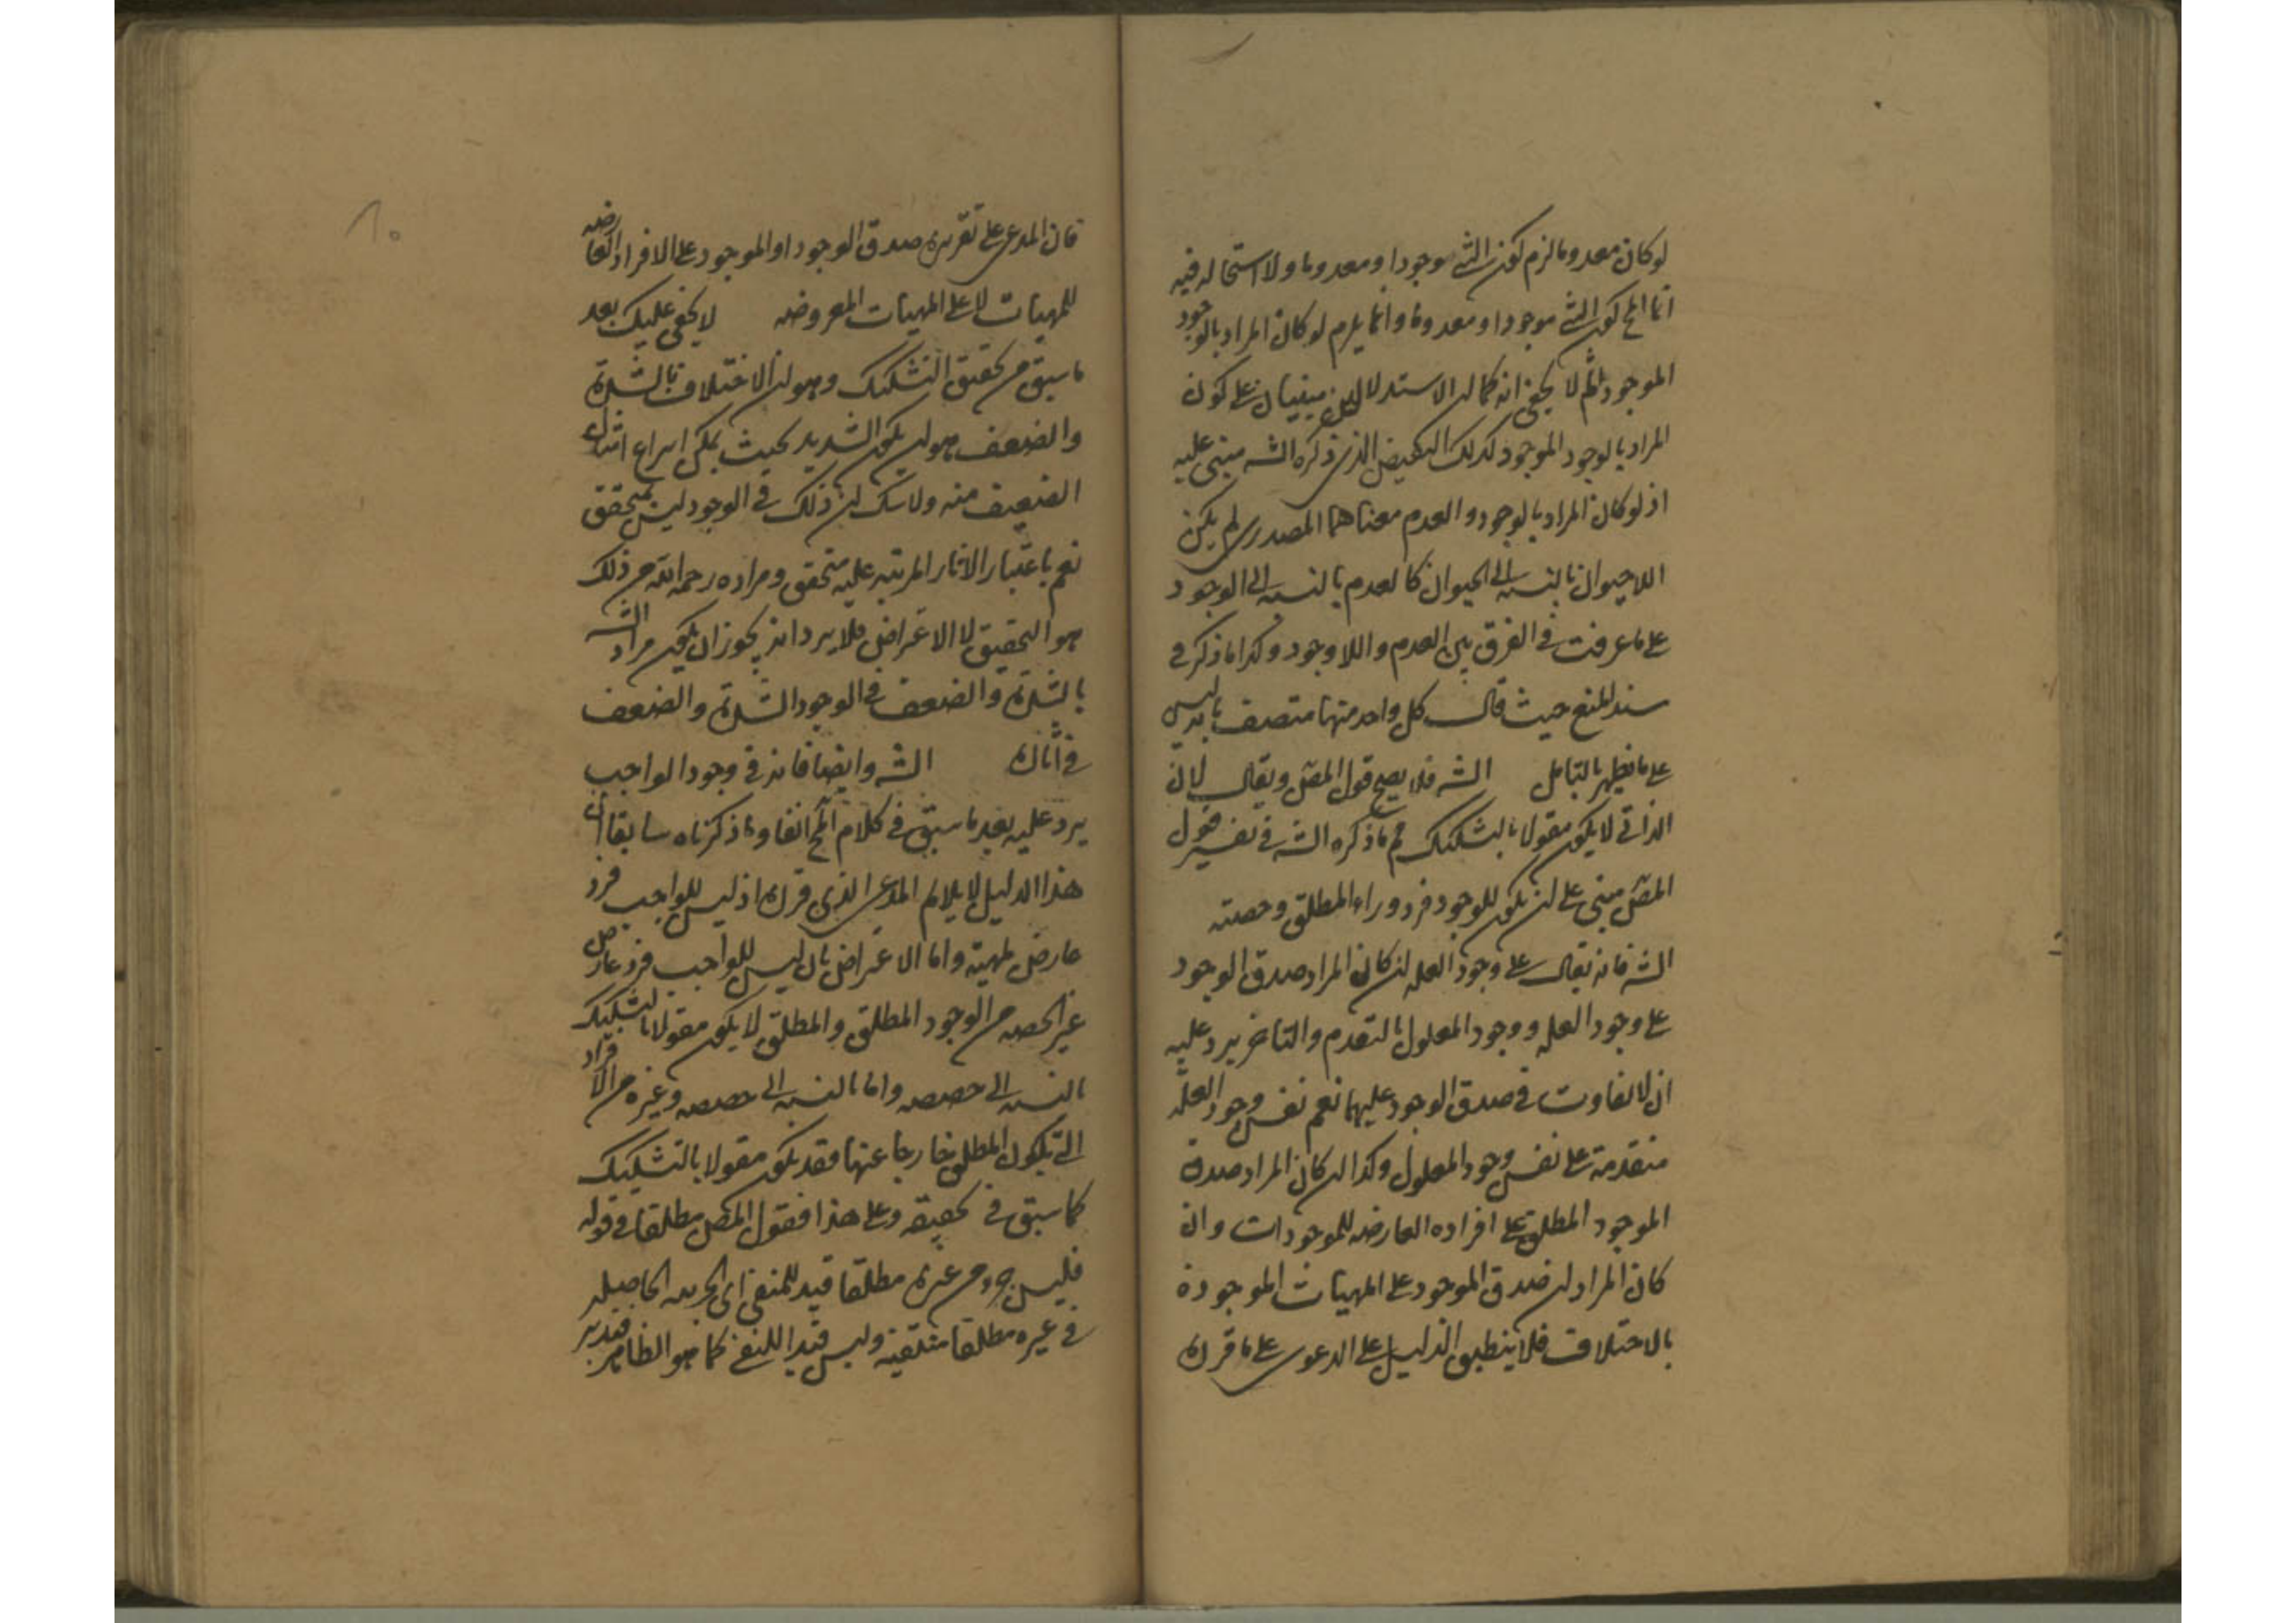 لو كان معدوما لزم كون الشئ موجودا ومعدوما ولا استحاله فيه
انما المح كون الشئ موجودا ومعدوما وانما يلزم لو كان المراد بالوجود
الموجود ثم لا يخفى انه كما ان الاستدلالين مبنيان على كون
المراد بالوجود الموجود كذلك النقيض الذى ذكره الشه مبنى عليه
اذ لو كان المراد بالوجود والعدم معناهما المصدرى لم يكن
اللاحيوان بالنسبه الى الحيوان كالعدم بالنسبه الى الوجود
على ما عرفت فى الفرق بين العدم واللاوجود وكذا ما ذكر فى
سند المنع حيث قال كل واحد منهما متصف بما ليس
على ما يظهر بالتامل الشه فلا يصح قول المصن ويقال بان
الذاتى لا يكون مقولا بالتشكيك ثم ما ذكره الشه فى تفسير قول
المصن مبنى على ان يكون للوجود فرد وراء المطلق وحصته
الشه فانه يقال على وجود العله ان كان المراد صدق الوجود
على وجود العله ووجود المعلول بالتقدم والتاخر يرد عليه
ان لا تفاوت فى صدق الوجود عليهما نعم نفس وجود العلة
متقدمة على نفس وجود المعلول وكذا ان كان المراد صدق
الموجود المطلق على افراده العارضه للموجودات وان
كان المراد ان صدق الموجود على المهيات الموجودة
بالاختلاف فلا ينطبق الدليل على الدعوى على ما قرره
١٠
فان المدعى على تقريره صدق الوجود او الموجود على الافراد العارضه
للمهيات لا على المهيات المعروضه لا يخفى عليك بعد
ما سبق من تحقيق التشكيك وهو ان الاختلاف بالشدة
والضعف هو ان يكون الشديد بحيث يمكن انتزاع امثال
الضعيف منه ولا شك ان ذلك فى الوجود ليس بمتحقق
نعم باعتبار الاثار المرتبه عليه متحقق ومراده رحمه الله من ذلك
هو التحقيق لا الاعتراض فلا يرد انه يجوز ان يكون مراد الشه
بالشدة والضعف فى الوجود الشدة والضعف
فى اثاره الشه وايضا فانه فى وجود الواجب
يرد عليه بعد ما سبق فى كلام المح انفا وما ذكرناه سابقا ان
هذا الدليل لا يلايم المدعى الذى قرره اذ ليس للواجب فرد
عارض لمهيته واما الاعتراض بان ليس للواجب فرد عارض
غير الحصه من الوجود المطلق والمطلق لا يكون مقولا بالتشكيك
بالنسبه الى حصصه واما بالنسبه الى حصصه وغيره من الافراد
التى يكون المطلق خارجا عنها فقد يكون مقولا بالتشكيك
كما سبق فى تحقيقه وعلى هذا فقول المصن مطلقا فى قوله
فليس جزء من غيره مطلقا قيد للمنفى اى الجزييه الحاصله
فى غيره مطلقا منتفيه وليس قيدا للنفى كما هو الظاهر فتدبر